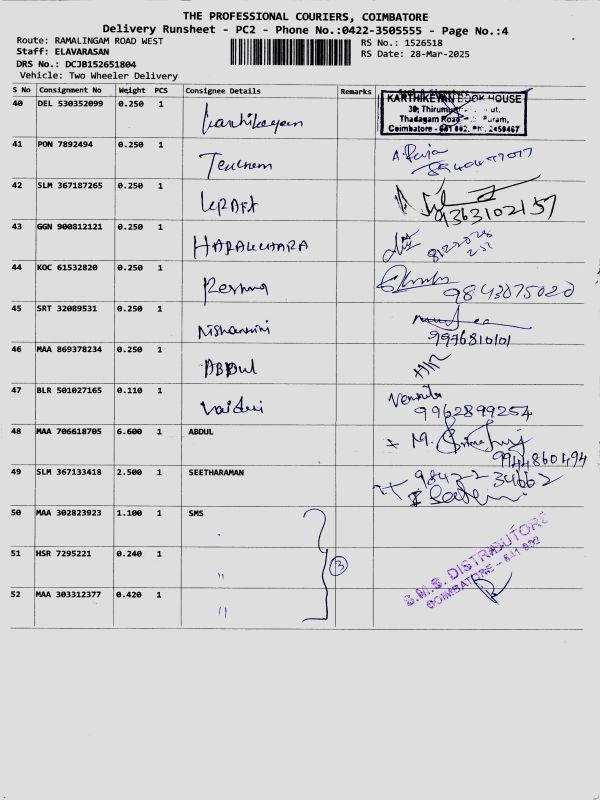 THE PROFESSIONAL COURIERS, COIMBATORE
Delivery Runsheet - PC2 - Phone No.:0422-3505555 - Page No.:4
Route: RAMALINGAM ROAD WEST
Staff: ELAVARASAN
DRS No.: DCJB152651804
Vehicle: Two Wheeler Delivery
RS No.: 1526518
RS Date: 28-Mar-2025
S No Consignment No Weight PCS Consignee Details Remarks
40 DEL 530352099 0.250 1 Karthikeyan
KARTHIKEYAN BOOK HOUSE
30, Thirum
Thadagam Road
Coimbatore - 641 002. 2450467
41 PON 7892494 0.250 1 A. Raja
42 SLM 367187265 0.250 1 KRAFT 9363102157
43 GGN 900812121 0.250 1
44 KOC 61532820 0.250 1 Reshma 9843075020
45 SRT 32089531 0.250 1 9976810101
46 MAA 869378234 0.250 1 ABDUL
47 BLR 501027165 0.110 1 9962899254
48 MAA 706618705 6.600 1 ABDUL M. 9944860494
49 SLM 367133418 2.500 1 SEETHARAMAN 98422 34662
50 MAA 302823923 1.100 1 SMS
51 HSR 7295221 0.240 1 " 3
S.M.S. DISTRIBUTORS
COIMBATORE - 641 002
52 MAA 303312377 0.420 1 "